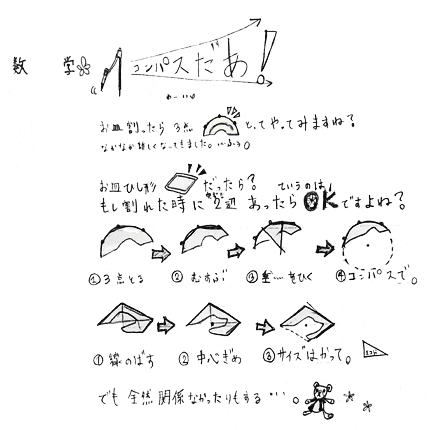 数学
コンパスだぁ!
お皿割ったら 3点 とってやってみますね?
なかなか難しくなってきました。
お皿ひし形 だったら? ていうのは、
もし割れた時に 2辺 あったら OKですよね?
①3点とる ②むすぶ ③垂…をひく ④コンパスで。
①線のばす ②中心ぎめ ③サイズはかって。
でも 全然関係なかったりもする…。